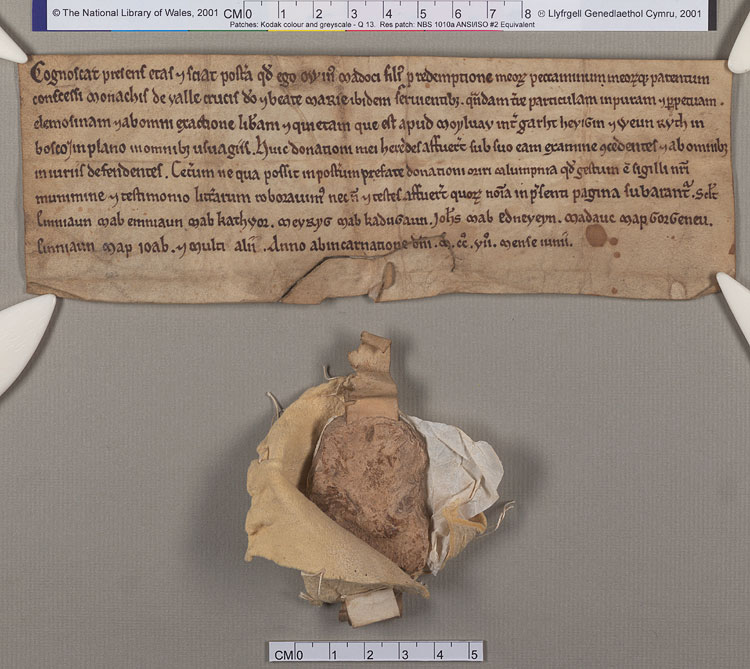 © The National Library of Wales, 2001 CM 0 1 2 3 4 5 6 7 8 ® Llyfrgell Genedlaethol Cymru, 2001
Patches: Kodak colour and greyscale - Q 13. Res patch: NBS 1010a ANSI/ISO #2 Equivalent
Cognoscat presens etas ⁊ sciat post'a qd ego owin' madoci fili' p redemptione meor' peccaminum meor'q; parentum
concessi monachis de valle crucis do ⁊ beate marie ibidem servientib; qndam t're particulam in puram ⁊ ppetuam.
elemosinam ⁊ ab omni exactione lib'am ⁊ quietam que est apud moyluay int' garht heyism ⁊ weun ryth in
bosco in plano in omnib; usuagiis. Huic donationi mei heredes affuer't sub suo eam examine ɔcedentes ⁊ ab omnib;
iniuriis defendentes. Cet'um ne qua possit in post'um prefate donationi oriri calumpnia qd gestum e sigilli mei
munimine ⁊ testimonio litt'arum coroboravim' nec n ⁊ testes affuer't quor' no'ia in p'senti pagina subarant'. Scil't
Enniaun mab eniniaun mab kathvor. meyryg mab kadugaun. Joh's mab edneveyn. madauc map Gorgeneu.
Enniaun map ioab. ⁊ multi alii. Anno ab incarnatione d'ni. m. cc. vii. mense iunii.
CM 0 1 2 3 4 5